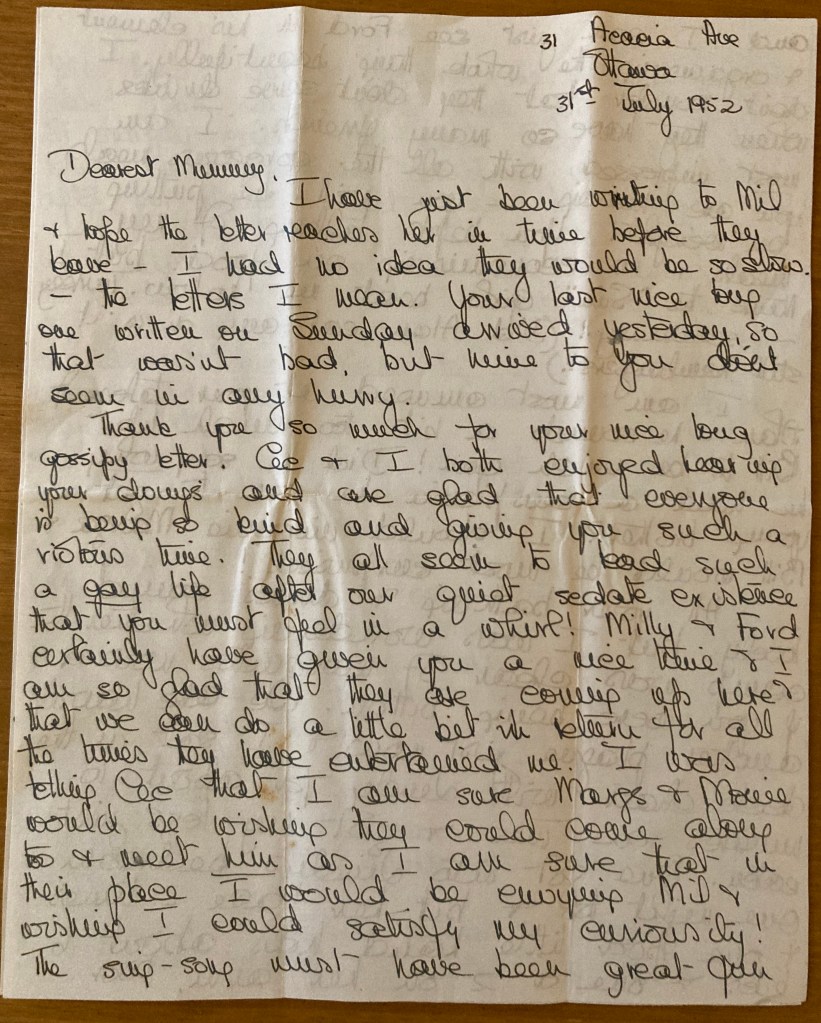 31 Acacia Ave
Ottawa
31st July 1952
Dearest Mummy,
I have just been writing to Mil
& hope the letter reaches her in time before they
leave - I had no idea they would be so slow.
- the letters I mean. Your last nice long
one written on Sunday arrived yesterday, so
that wasn't bad, but mine to you don't
seem in any hurry.
Thank you so much for your nice long
gossipy letter. Cec & I both enjoyed hearing
your doings and are glad that everyone
is being so kind and giving you such a
riotous time. They all seem to lead such
a gay life after our quiet sedate existence
that you must feel in a whirl! Milly & Ford
certainly have given you a nice time & I
am so glad that they are coming up here &
that we can do a little bit in return for all
the times they have entertained me. I was
telling Cec that I am sure Margs & Morie
would be wishing they could come along
to & meet him as I am sure that in
their place I would be envying Mil &
wishing I could satisfy my curiousity!
The sing-song must have been great fun